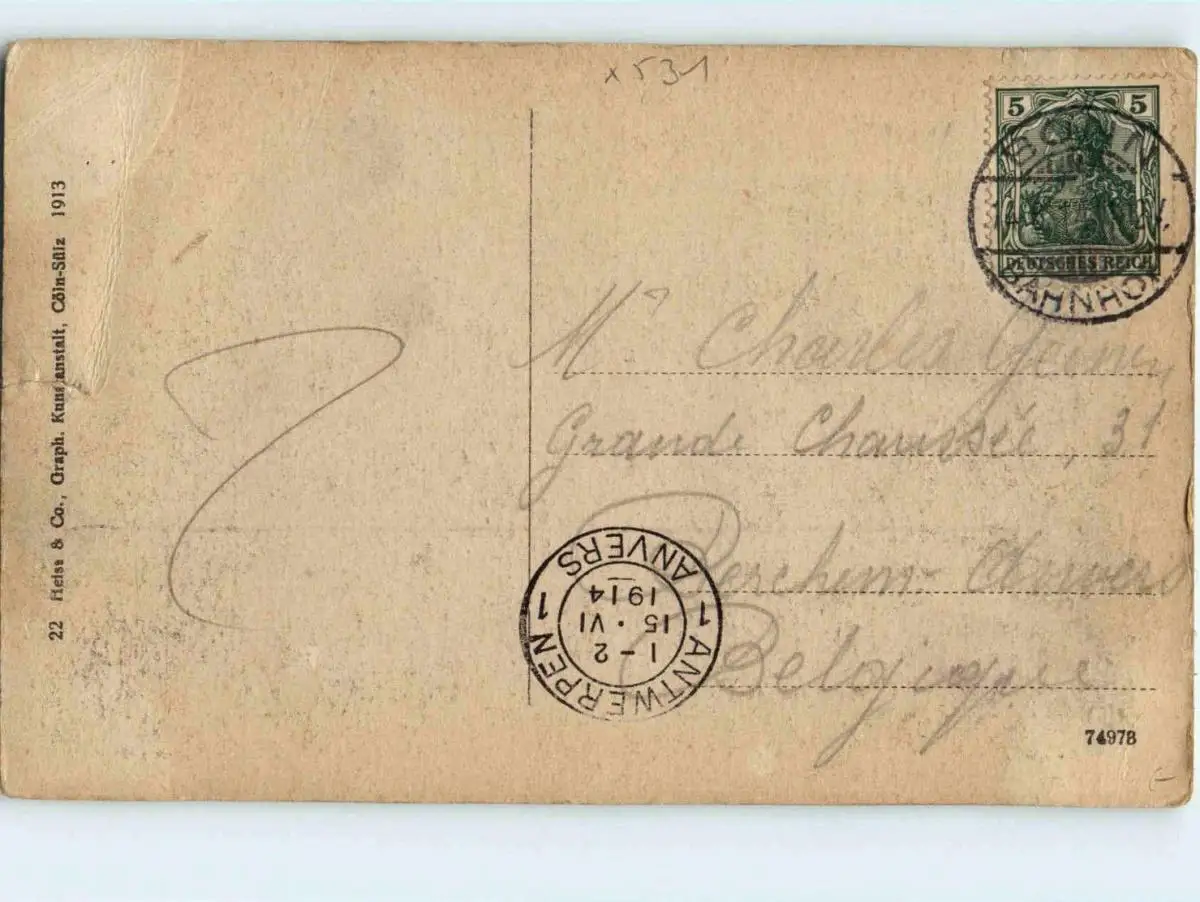 x 531
22 Heiss & Co., Graph. Kunstanstalt, Cöln-Sülz 1913
5 5
DEUTSCHES REICH
BAHNHOF
Mr Charles
Grande Chaussée, 31
Berchem-Anvers
Belgique
1 ANTWERPEN 1
1-2
15 • VI
1914
ANVERS
74978